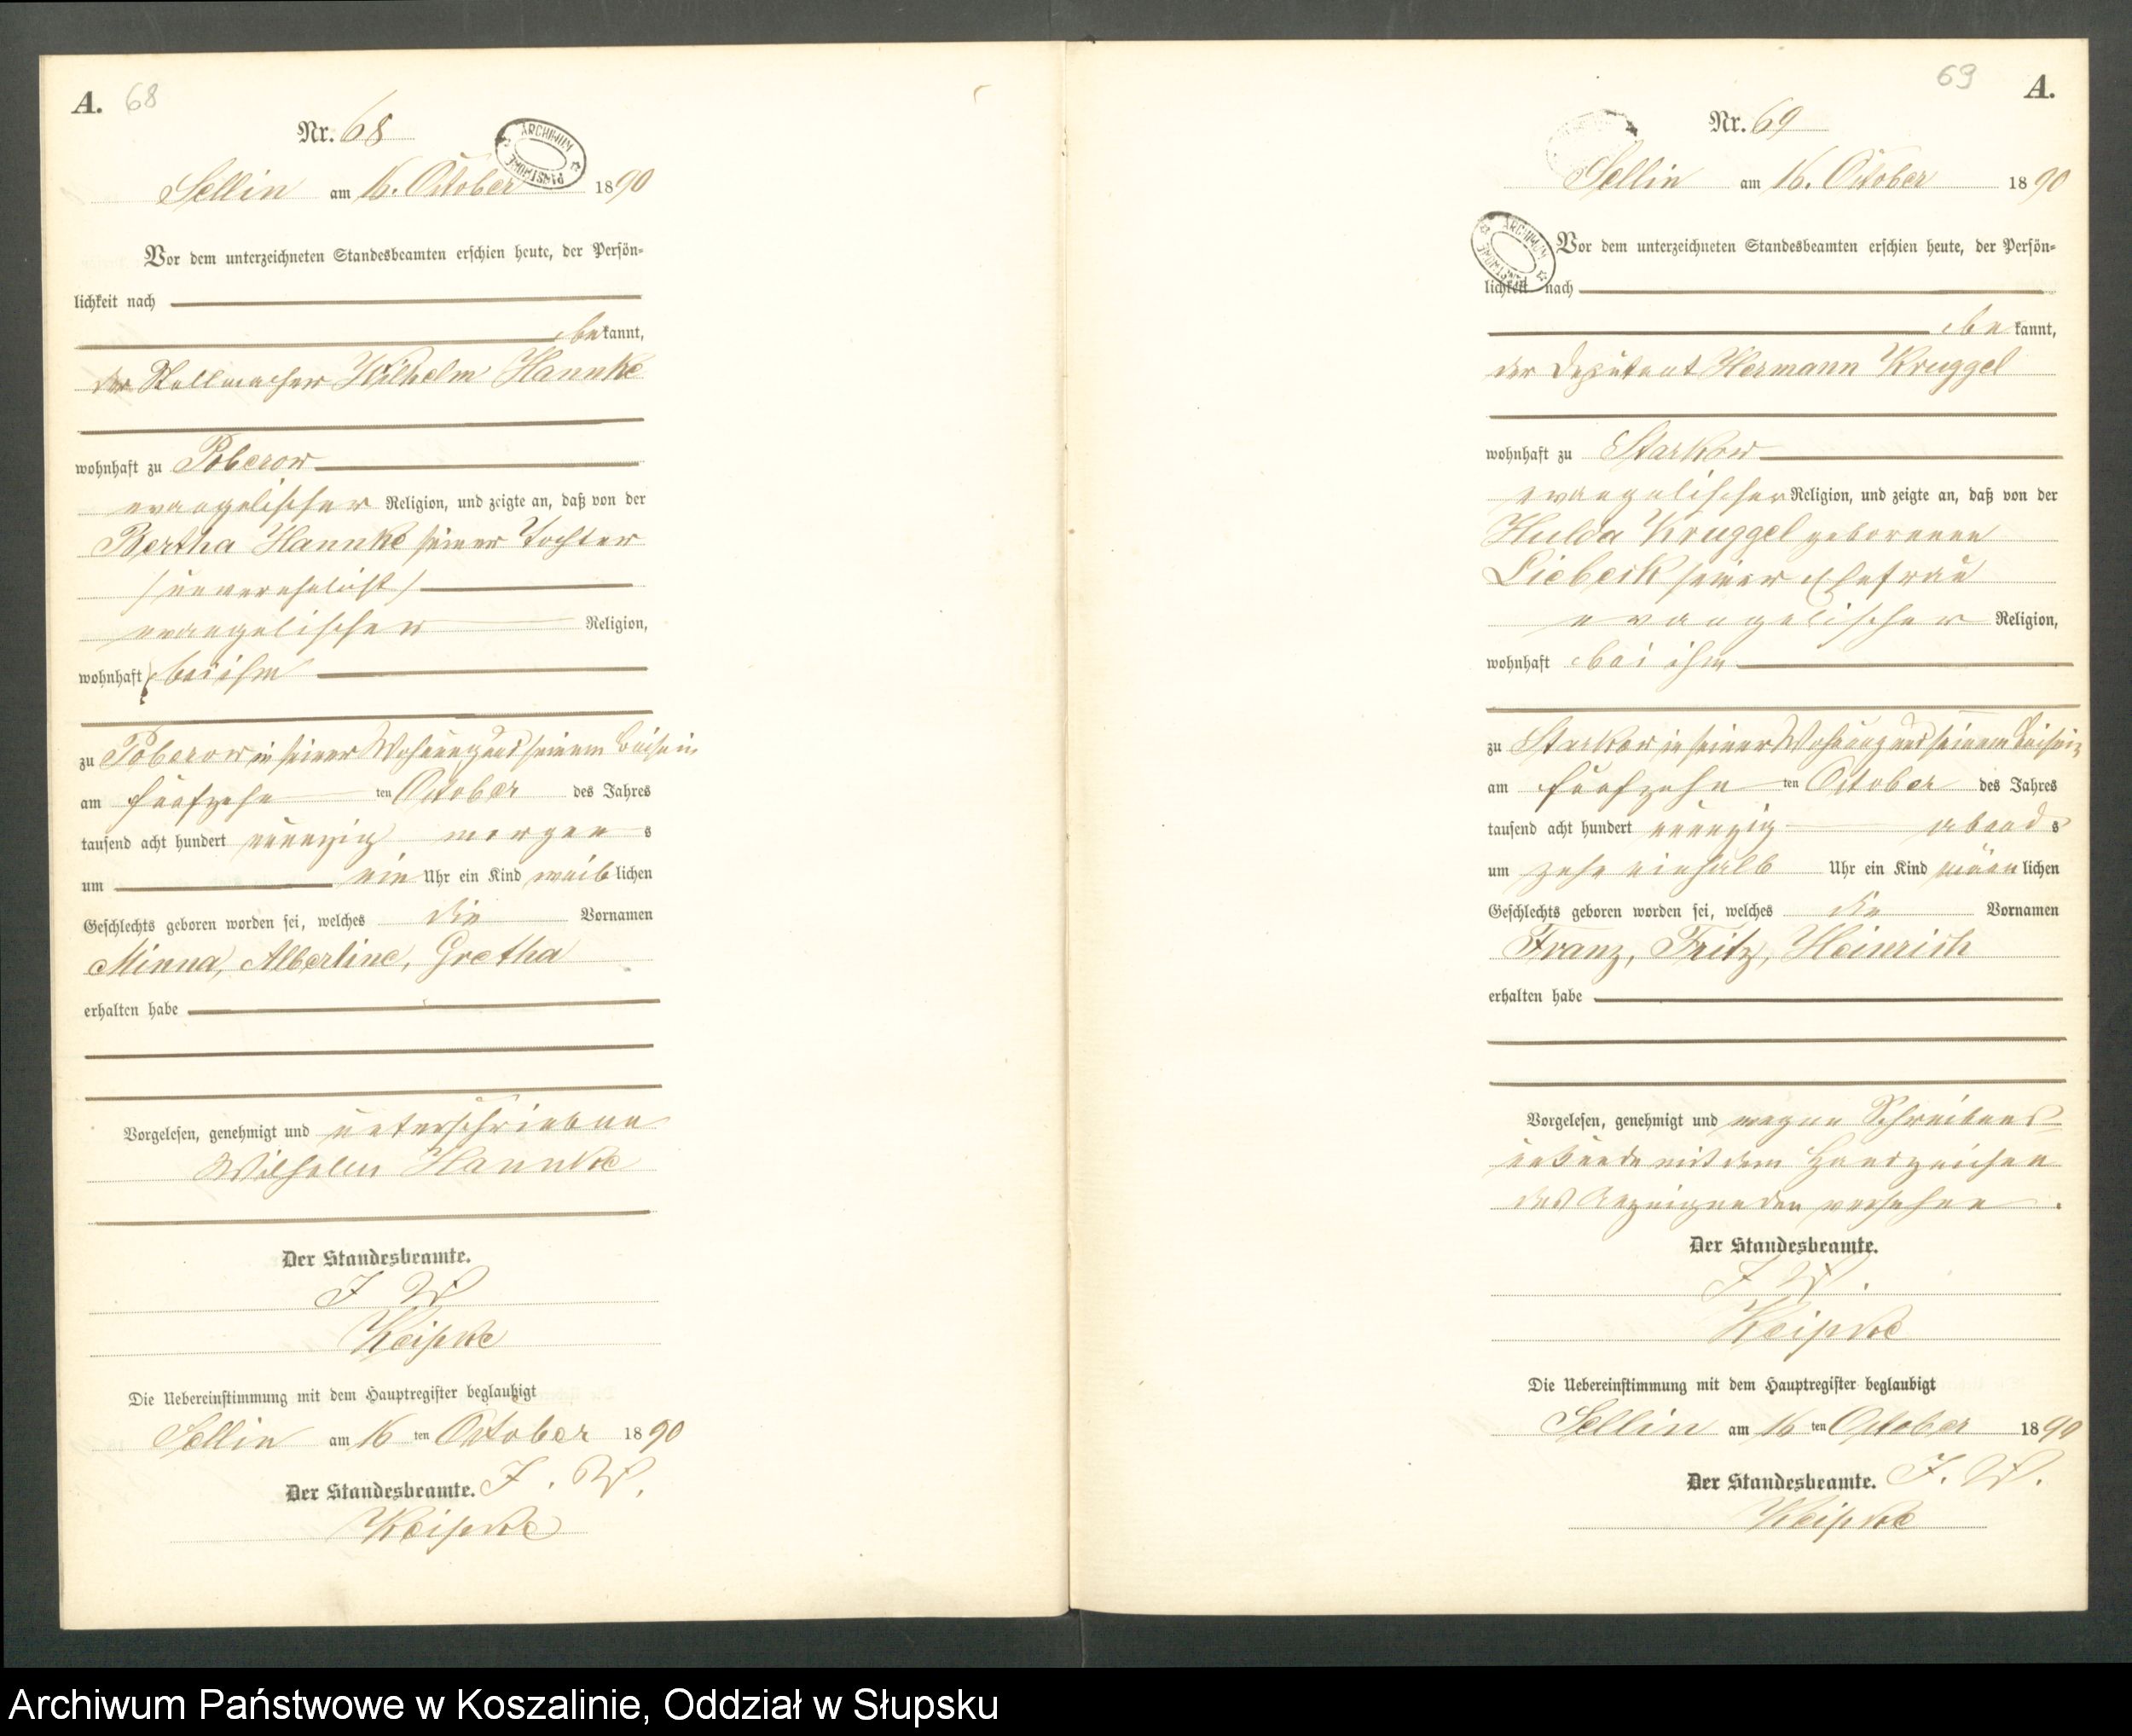 A. 68
Nr. 68
ARCHIWUM PAŃSTWOWE
Sellin am 16. October 1890
Vor dem unterzeichneten Standesbeamten erschien heute, der Persön-
lichkeit nach
bekannt,
der Stellmacher Wilhelm Hannke
wohnhaft zu Poberow
evangelischer Religion, und zeigte an, daß von der
Bertha Hannke seiner Tochter
/unverehelicht/
evangelischer Religion,
wohnhaft bei ihm
zu Poberow in seiner Wohnung und seinem Beisein
am fünfzehn ten October des Jahres
tausend acht hundert neunzig morgens
um ein Uhr ein Kind weiblichen
Geschlechts geboren worden sei, welches die Vornamen
Minna, Albertine, Gretha
erhalten habe
Vorgelesen, genehmigt und unterschrieben
Wilhelm Hannke
Der Standesbeamte.
J W
Keipke
Die Uebereinstimmung mit dem Hauptregister beglaubigt
Sellin am 16 ten October 1890
Der Standesbeamte. J. W.
Keipke
69 A.
Nr. 69
Sellin am 16. October 1890
ARCHIWUM PAŃSTWOWE
Vor dem unterzeichneten Standesbeamten erschien heute, der Persön-
lichkeit nach
bekannt,
der Deputant Hermann Kruggel
wohnhaft zu Starkow
evangelischer Religion, und zeigte an, daß von der
Hulda Kruggel geborenen
Liebeck seiner Ehefrau
evangelischer Religion,
wohnhaft bei ihm
zu Starkow in seiner Wohnung und seinem Beisein
am fünfzehn ten October des Jahres
tausend acht hundert neunzig abends
um zehn einhalb Uhr ein Kind männlichen
Geschlechts geboren worden sei, welches die Vornamen
Franz, Fritz, Heinrich
erhalten habe
Vorgelesen, genehmigt und wegen Schreibens-
unkunde mit dem Handzeichen
des Anzeigenden versehen.
Der Standesbeamte.
J W.
Keipke
Die Uebereinstimmung mit dem Hauptregister beglaubigt
Sellin am 16 ten October 1890
Der Standesbeamte. J. W.
Keipke
Archiwum Państwowe w Koszalinie, Oddział w Słupsku